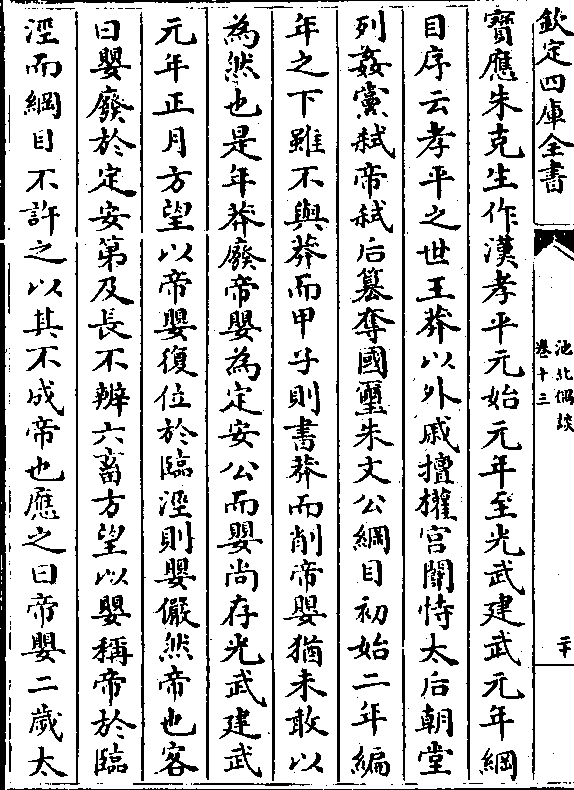 欽定四庫全書
池北偶談
卷十三
二十
寶應朱克生作漢孝平元始元年至光武建武元年綱
目序云孝平之世王莽以外戚擅權宮闈恃太后朝堂
列姦黨弑帝弑后篡奪國璽朱文公綱目初始二年編
年之下雖不與莽而甲子則書莽而削帝嬰猶未敢以
為然也是年莽廢帝嬰為定安公而嬰尚存光武建武
元年正月方望以帝嬰復位於臨涇則嬰儼然帝也客
曰嬰廢於定安第及長不辨六畜方望以嬰稱帝於臨
涇而綱目不許之以其不成帝也應之曰帝嬰二歲太